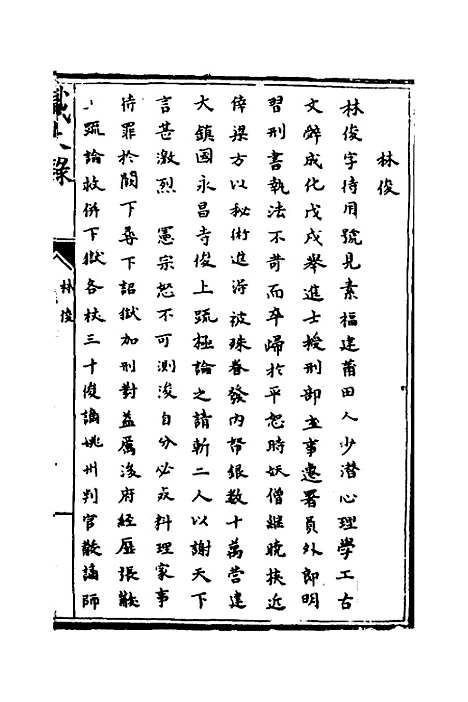 林俊
林俊字待用號見素福建莆田人少潛心理學工古
文辭成化戊戌舉進士授刑部主事遷署員外郎明
習刑書執法不苛而卒歸於平恕時妖僧繼曉挾近
倖梁方以秘術進得被殊眷發內帑銀數十萬營建
大鎮國永昌寺俊上疏極論之請斬二人以謝天下
言甚激烈 憲宗怒不可測浚自分必死料理家事
待罪於闕下尋下詔獄加刑對益厲後府經歷張黻
上疏論救併下獄各杖三十俊謫姚州判官黻謫師
林俊